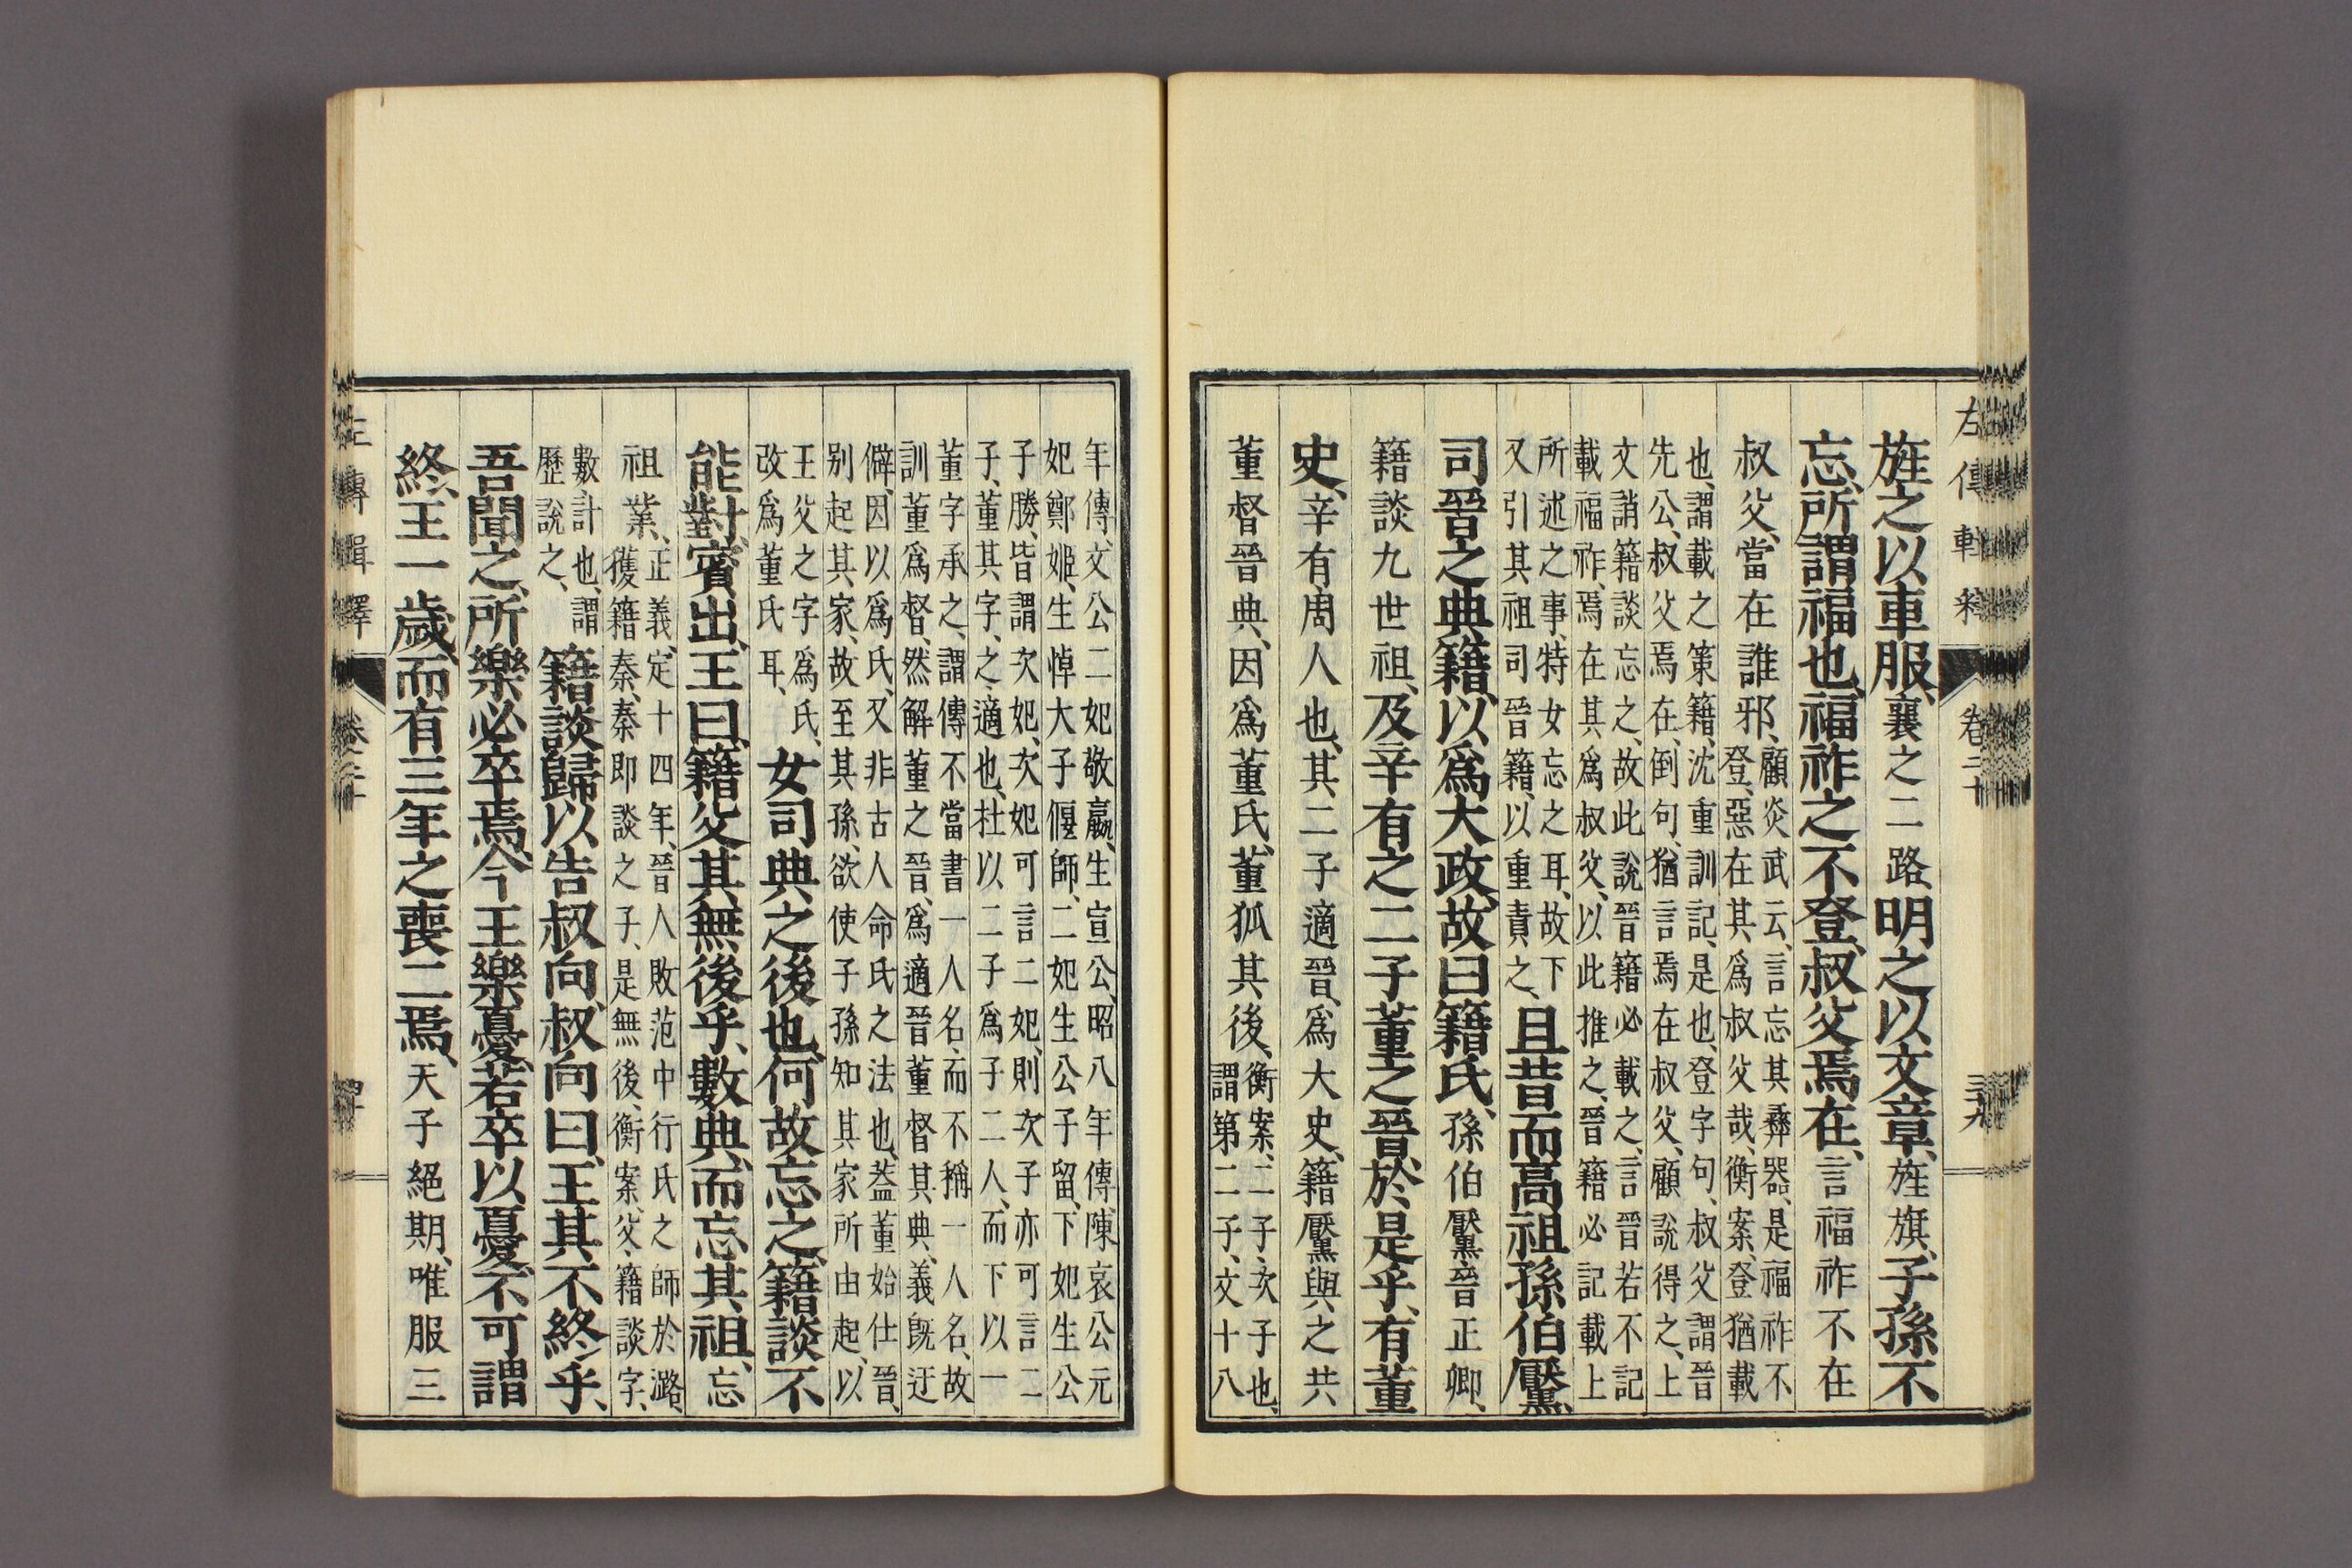 左傳輯釋 卷二十 三十九
旌之以車服、襄之二路、明之以文章、旌旗、子孫不
忘、所謂福也、福祚之不登、叔父焉在、言福祚不在
叔父、當在誰邪、
顧炎武云、言忘其彝器、是福祚不
登、惡在其爲叔父哉、衡案、登猶載
也、謂載之策籍、沈重訓記、是也、登字句、叔父謂晉
先公、叔父焉在、倒句、猶言焉在叔父、顧說得之、上
文誚籍談忘之、故此說晉籍必載之、言晉若不記
載福祚、焉在其爲叔父、以此推之、晉籍必記載上
所述之事、特女忘之耳、故下
又引其祖司晉籍、以重責之、
且昔而高祖孫伯黶、
司晉之典籍、以爲大政、故曰籍氏、孫伯黶晉正卿、
籍談九世祖、及辛有之二子董之晉、於是乎、有董
史、辛有周人也、其二子適晉、爲大史、籍黶與之共
董督晉典、因爲董氏、董狐其後、
衡案、二子、次子也、
謂第二子、文十八
年傳、文公二妃敬嬴、生宣公、昭八年傳、陳哀公元
妃鄭姬、生悼大子偃師、二妃生公子留、下妃生公
子勝、皆謂次妃、次妃可言二妃、則次子亦可言二
子、董其字、之適也、杜以二子爲子二人、而下以一
董字承之、謂傳不當書一人名、而不稱一人名、故
訓董爲督、然解董之晉、爲適晉董督其典、義旣迂
僻、因以爲氏、又非古人命氏之法也、蓋董始仕晉、
別起其家、故至其孫、欲使子孫知其家所由起、以
王父之字爲氏、
改爲董氏耳、
女司典之後也、何故忘之、籍談不
能對、賓出、王曰、籍父其無後乎、數典、而忘其祖、忘
祖業、
正義、定十四年、晉人敗范中行氏之師於潞、
獲籍秦、秦即談之子、是無後、衡案、父、籍談字、
數計也、謂
歷說之、
籍談歸、以告叔向、叔向曰、王其不終乎、
吾聞之、所樂必卒焉、今王樂憂、若卒以憂、不可謂
終、王一歲、而有三年之喪二焉、天子絕期、唯服三
左傳輯釋 卷二十 四十